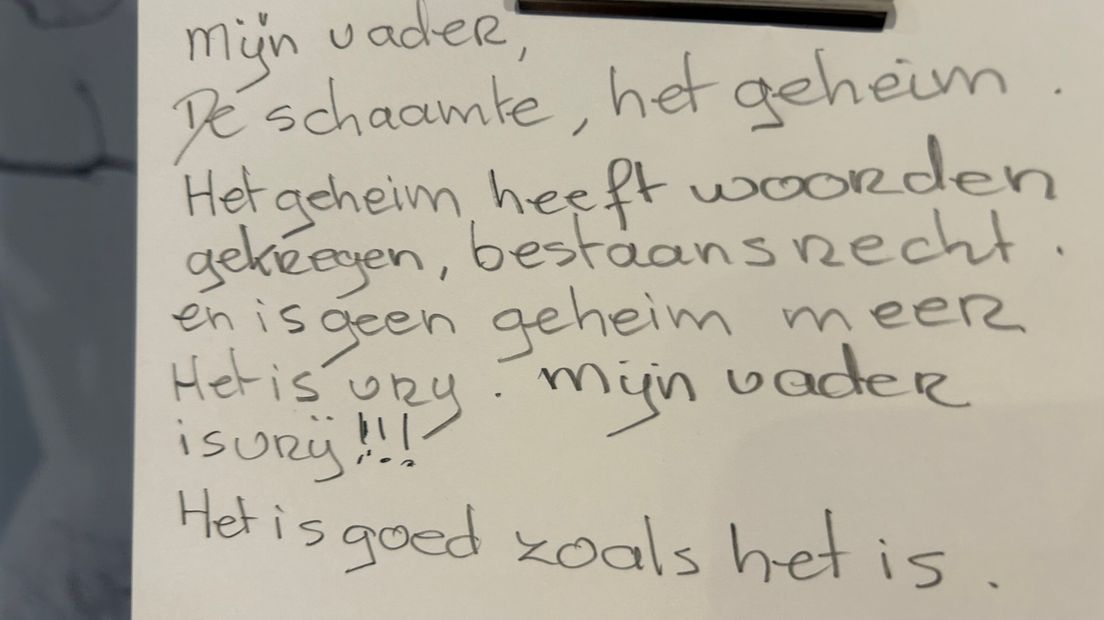 mijn vader,
De schaamte, het geheim.
Het geheim heeft woorden
gekregen, bestaansrecht.
en is geen geheim meer
Het is vry. mijn vader
is vrij!!!
Het is goed zoals het is.